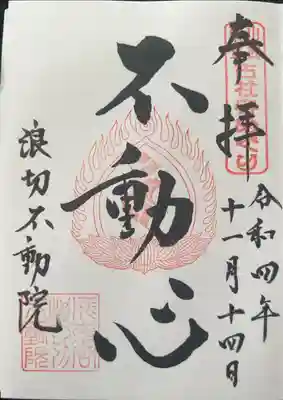 奉拝
令和四年
十一月十四日
不動心
浪切不動院